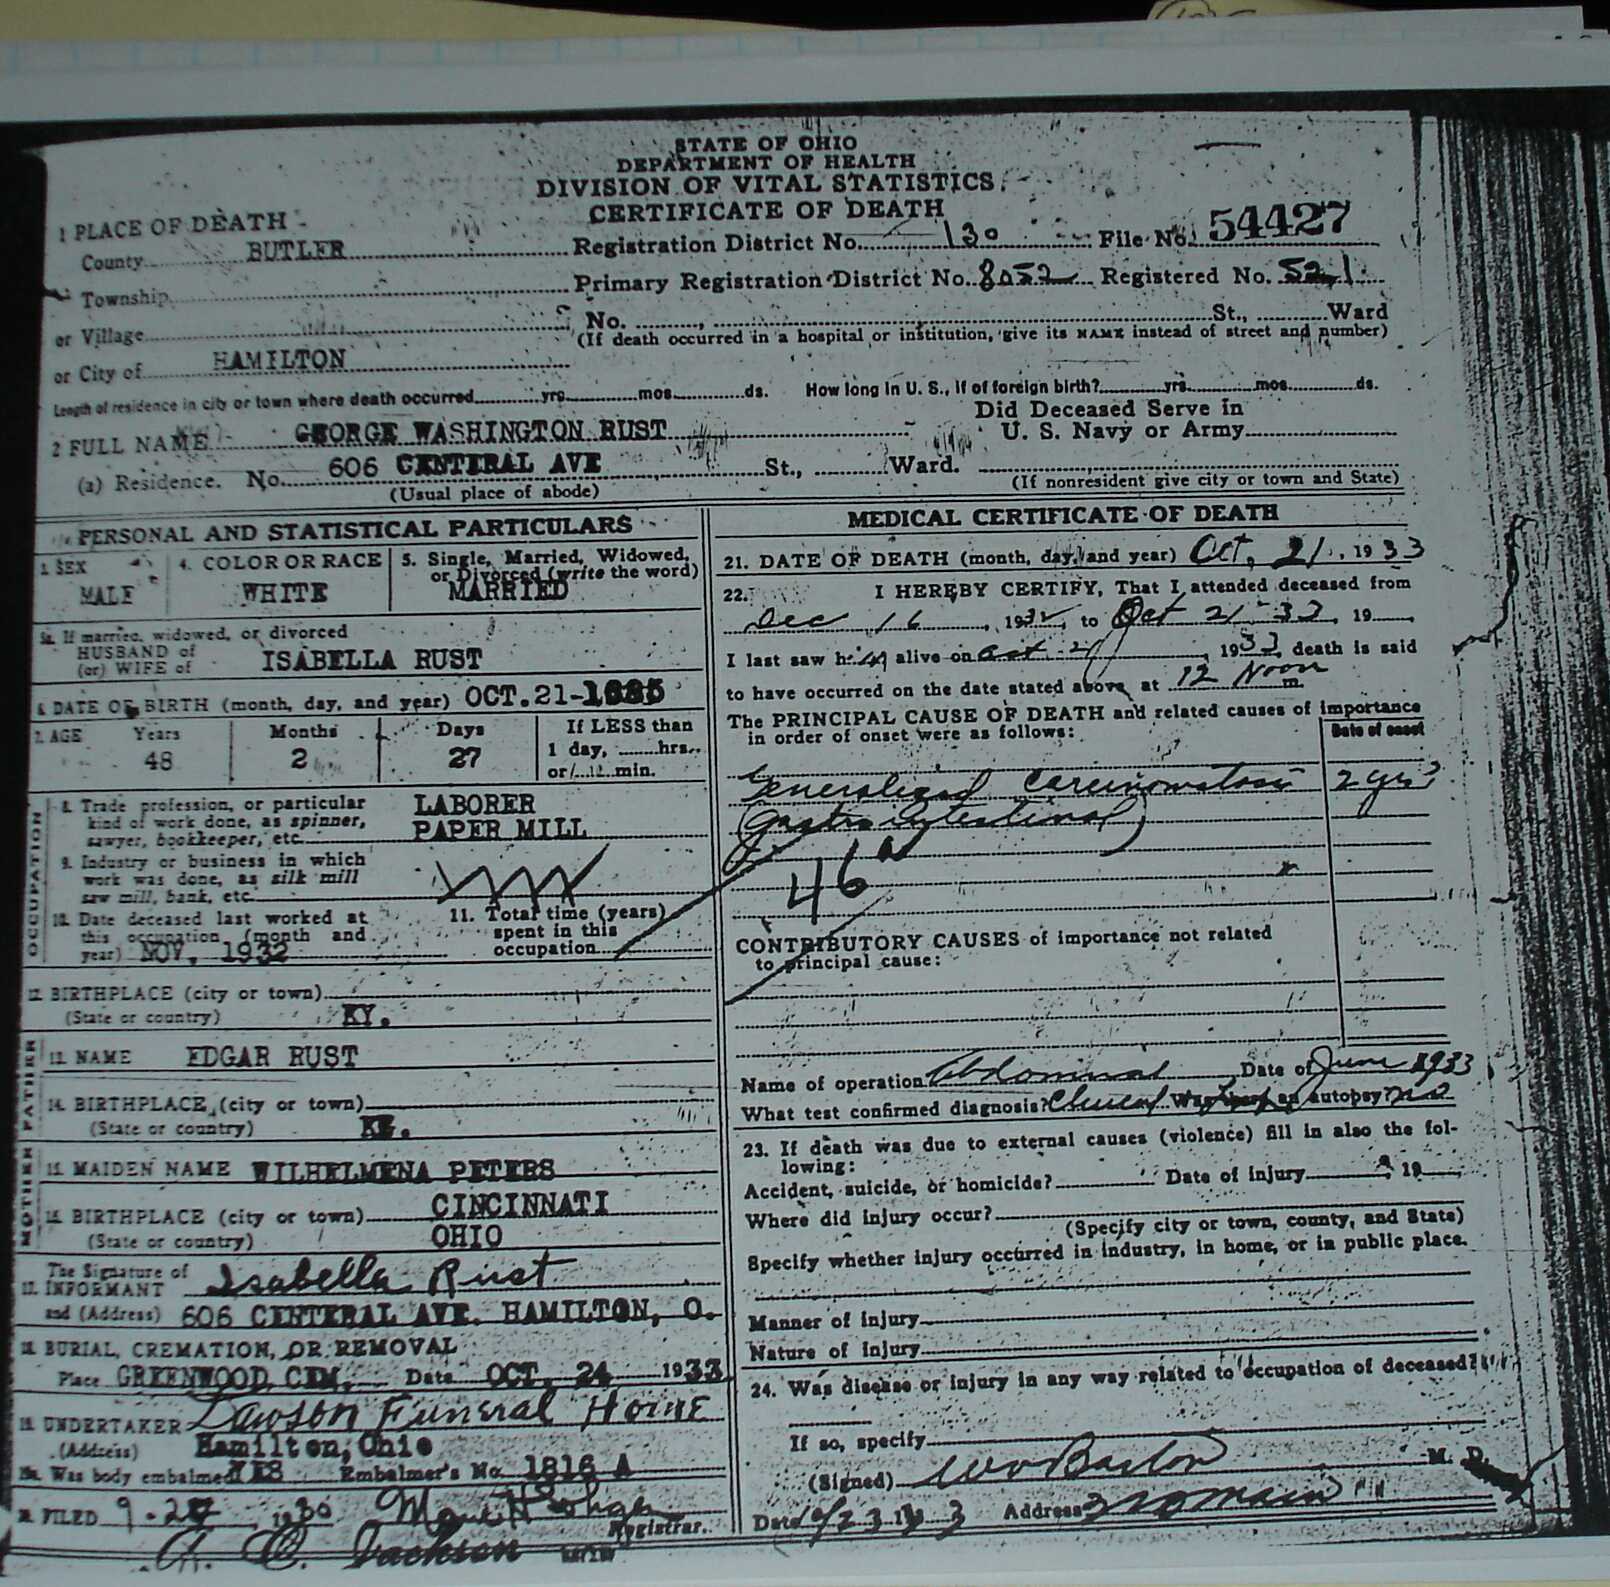 STATE OF OHIO
DEPARTMENT OF HEALTH
DIVISION OF VITAL STATISTICS
CERTIFICATE OF DEATH
1 PLACE OF DEATH
County BUTLER Registration District No. 130 File No. 54427
Township Primary Registration District No. 8052 Registered No. 521
or Village No. , St., Ward
(If death occurred in a hospital or institution, give its NAME instead of street and number)
or City of HAMILTON
Length of residence in city or town where death occurred yrs. mos. ds. How long in U. S., if of foreign birth? yrs. mos. ds.
2 FULL NAME GEORGE WASHINGTON RUST Did Deceased Serve in U. S. Navy or Army
(a) Residence. No. 606 CENTERAL AVE St., Ward.
(Usual place of abode) (If nonresident give city or town and State)
PERSONAL AND STATISTICAL PARTICULARS
3. SEX MALE
4. COLOR OR RACE WHITE
5. Single, Married, Widowed, or Divorced (write the word) MARRIED
5a. If married, widowed, or divorced
HUSBAND of
(or) WIFE of ISABELLA RUST
6. DATE OF BIRTH (month, day, and year) OCT. 21-
7. AGE Years Months Days If LESS than
48 2 27 1 day, hrs.
or min.
OCCUPATION
8. Trade profession, or particular LABORER
kind of work done, as spinner, PAPER MILL
sawyer, bookkeeper, etc.
9. Industry or business in which
work was done, as silk mill
saw mill, bank, etc.
10. Date deceased last worked at
this occupation (month and
year) NOV, 1932
11. Total time (years)
spent in this
occupation
12. BIRTHPLACE (city or town)
(State or country) KY.
FATHER
13. NAME EDGAR RUST
14. BIRTHPLACE (city or town)
(State or country)
MOTHER
15. MAIDEN NAME WILHELMENA PETERS
16. BIRTHPLACE (city or town) CINCINNATI
(State or country) OHIO
17. The Signature of
INFORMANT Isabella Rust
and (Address) 606 CENTERAL AVE. HAMILTON, O.
18. BURIAL, CREMATION, OR REMOVAL
Place GREENWOOD CEM. Date OCT. 24 1933
19. UNDERTAKER Lawson Funeral Home
(Address) Hamilton, Ohio
19a. Was body embalmed YES Embalmer's No. 1816 A
20. FILED Registrar.
Jackson
MEDICAL CERTIFICATE OF DEATH
21. DATE OF DEATH (month, day, and year) Oct. 21, 1933
22. I HEREBY CERTIFY, That I attended deceased from
Dec 16, 1932, to Oct 21 33, 19
I last saw him alive on Oct 21, 1933, death is said
to have occurred on the date stated above, at 12 Noon m.
The PRINCIPAL CAUSE OF DEATH and related causes of importance
in order of onset were as follows: Date of onset
Generalized Carcinomatosis 2 yrs
(gastro intestinal)
46
CONTRIBUTORY CAUSES of importance not related
to principal cause:
Name of operation Abdominal Date of June 1933
What test confirmed diagnosis? Clinical Was there an autopsy? no
23. If death was due to external causes (violence) fill in also the fol-
lowing:
Accident, suicide, or homicide? Date of injury 19
Where did injury occur?
(Specify city or town, county, and State)
Specify whether injury occurred in industry, in home, or in public place.
Manner of injury
Nature of injury
24. Was disease or injury in any way related to occupation of deceased?
If so, specify
(Signed) M. D.
Date 10/23 1933 Address